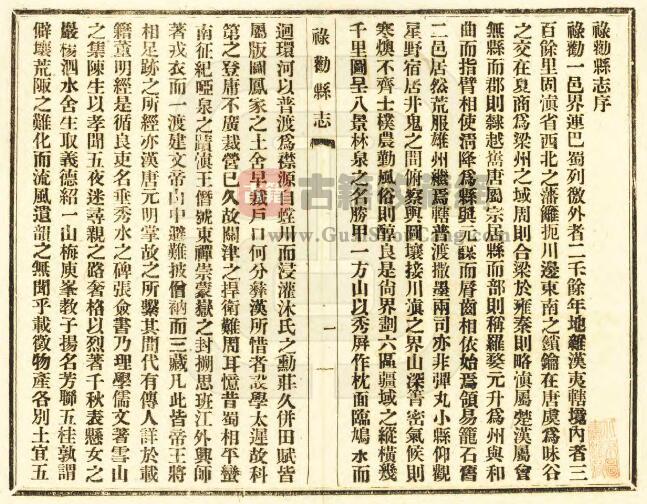 祿勸縣志序
祿勸一邑界連巴蜀列徼外者二千餘年地雜漢夷轄境內者三
百餘里固滇省西北之藩籬扼川邊東南之鎖鑰在唐虞爲昧谷
之交在夏商爲梁州之域周則合梁於雍秦則略滇屬楚漢屬會
無縣而郡則隸越巂唐屬宗居縣而部則稱羅婺元升爲州與和
曲而指臂相使淸降爲縣與元謀而脣齒相依始爲領易籠石舊
二邑居然荒服雄州繼爲轄普渡撒墨兩司亦非彈丸小縣仰觀
星野宿居井鬼之間俯察輿圖壤接川滇之界山深箐密氣候則
寒燠不齊士樸農勤風俗則醇良是尙界劃六區疆域之縱橫幾
千里圖呈八景林泉之名勝甲一方山以秀屏作枕面臨鳩水而
祿勸縣志
一
迴環河以普渡爲襟源自螳川而浸灌沐氏之勳莊久併田賦皆
屬版圖鳳家之土舍早裁戶口何分彝漢所惜者設學太遲故科
第之登庸不廣裁營已久故關津之捍衛難周耳憶昔蜀相平蠻
南征紀啞泉之蹟滇王僭號東禪崇蒙嶽之封捌思班江外興師
著戎衣而一渡建文帝山中避難披僧衲而三藏凡此皆帝王將
相足跡之所經亦漢唐元明掌故之所繫其間代有傳人詳於載
籍董明經是循良吏名垂秀水之碑張僉書乃理學儒文著雪山
之集陳生以孝聞五夜迷尋親之路奢格以烈著千秋表懸女之
巖楊泗水舍生取義德紹一山梅庾峯教子揚名芳聯五桂孰謂
僻壤荒陬之難化而流風遺韻之無聞乎載徵物產各別土宜五
古籍收藏網
www.GuJiShouCang.com